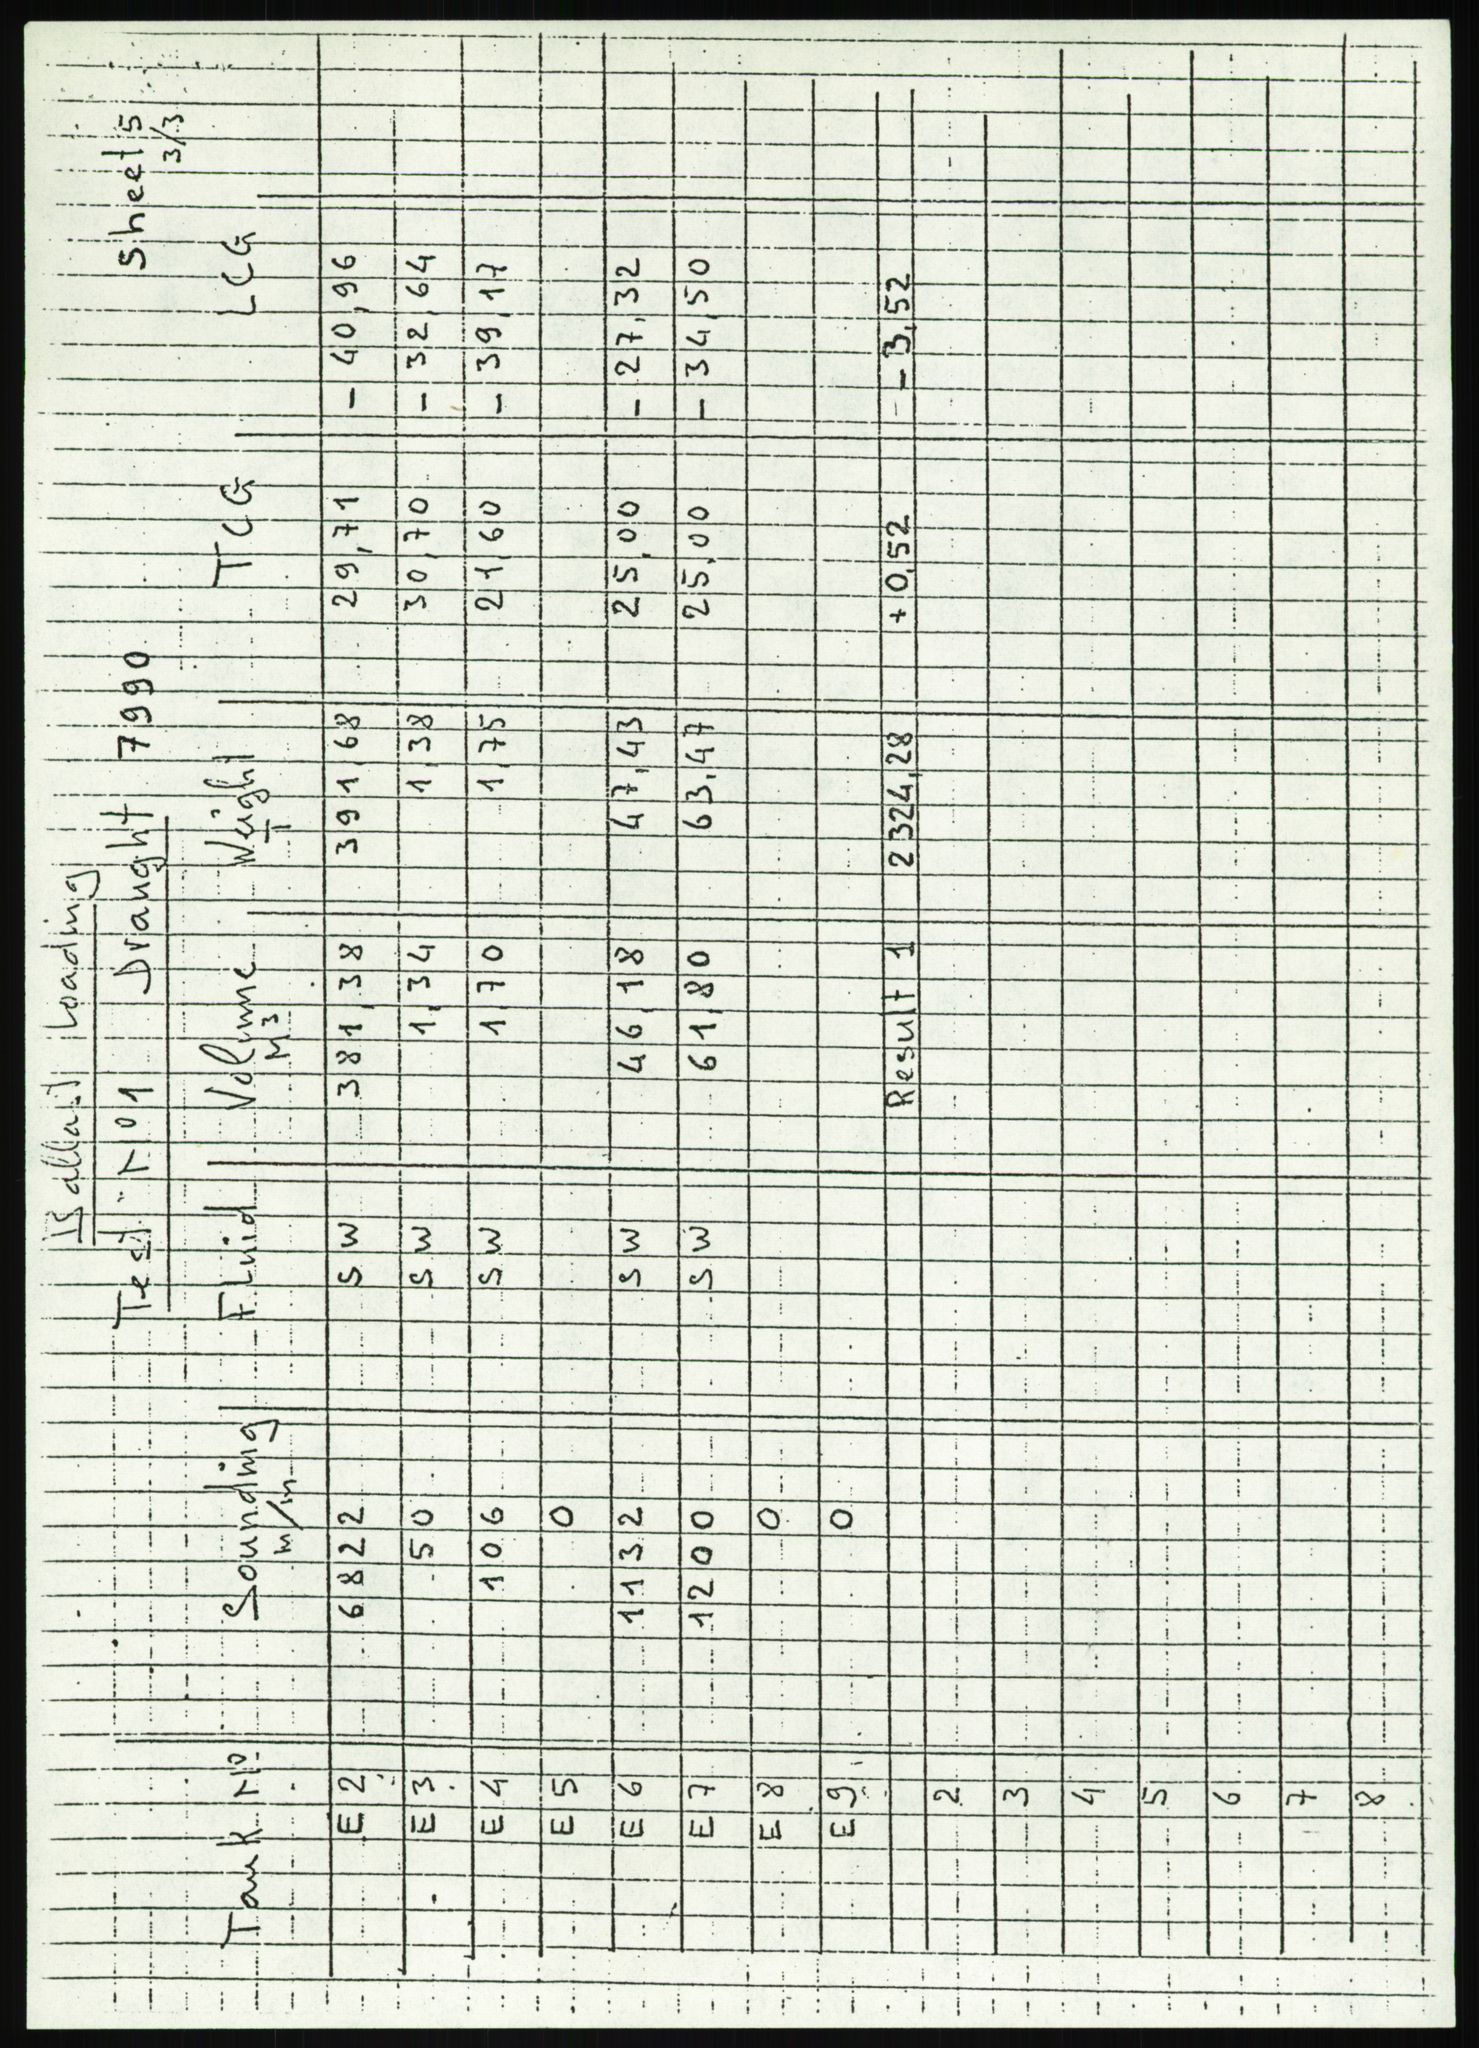 Ballast Loading
Test No 1 Draught 7990 Sheet 5
3/3
Tank No Sounding Fluid Volume Weight TCG LCG
m/m M3 T
E2 6822 SW 381,38 391,68 29,71 - 40,96
E3 50 SW 1,34 1,38 30,70 - 32,64
E4 106 SW 1,70 1,75 21,60 - 39,17
E5 0
E6 1132 SW 46,18 47,43 25,00 - 27,32
E7 1200 SW 61,80 63,47 25,00 - 34,50
E8 0
E9 0
Result 1 2324,28 +0,52 - 3,52
2
3
4
5
6
7
8